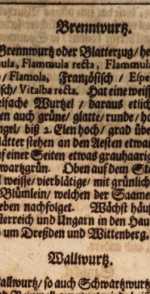 Brennwurtz.
Brennwurtz oder Blatterzug/
Flammula recta, Flammula
/ Flamola, Französisch / Espe
sch/ Vitalba recta. Hat eine weiss
elfache Wurtzel / daraus etlich
en auch grüne/ glatte/ runde/ ho
ngel/ biß 2. Elen hoch/ grad übers
lätter stehen an den Aesten etwas
uf einer Seiten etwas grauhaarig
wartzgrün. Oben auf dem Ste
l weisse/ vierblätige/ mit grünlich
Blümlein/ welchen der Saame
eben nachfolget. Wächst häuf
terreich und Ungarn in den Hau
um Dreßden und Wittenberg.
Wallwurtz.
allwurtz/ so auch Schwartzwurtz